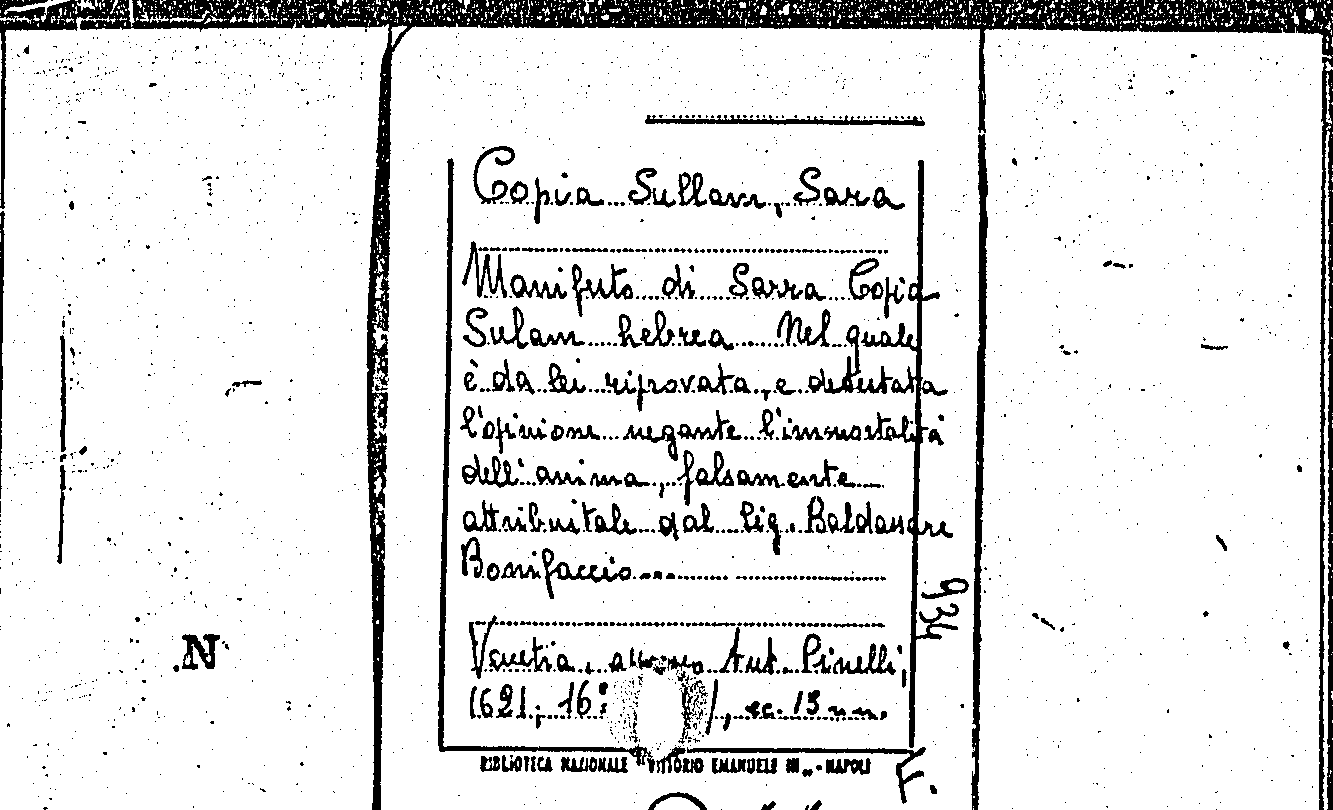 Copia Sullam, Sara
Manifesto di Sarra Copia
Sulam hebrea. Nel quale
è da lei riprovata, e detestata
l'opinione negante l'immortalità
dell'anima, falsamente
attribuitale dal Sig. Baldassare
Bonifaccio...
Venetia, appresso Ant. Pinelli,
1621; 16° , cc. 13 nn.
934
BIBLIOTECA NAZIONALE "VITTORIO EMANUELE III" - NAPOLI
N.